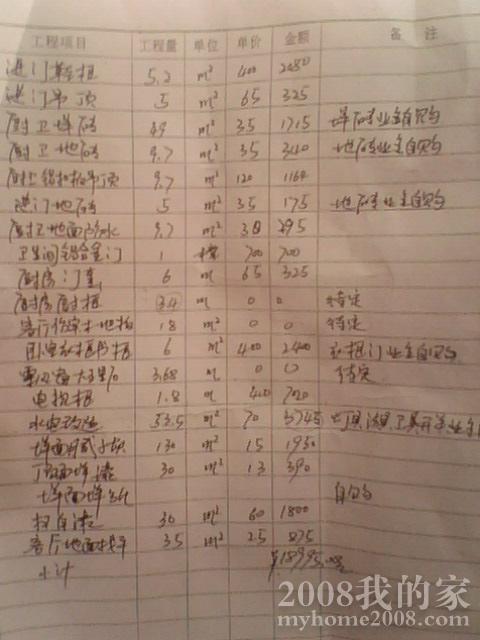 工程项目 工程量 单位 单价 金额 备注
进门鞋柜 5.2 m² 400 2080
进门吊顶 5 m² 65 325
厨卫墙砖 49 m² 35 1715 墙砖业主自购
厨卫地砖 9.7 m² 35 340 地砖业主自购
厨卫铝扣板吊顶 9.7 m² 120 1164
进门地砖 5 m² 35 175 地砖业主自购
厨卫地面防水 9.7 m² 30 295
卫生间铝合金门 1 700 700
厨房门套 6 m 65 325
厨房厨柜 3.4 m 0 0 待定
客厅卧室木地板 18 m² 0 0 待定
卧室衣柜书柜 6 m² 400 2400 衣柜门业主自购
3.68 m 0 0 待定
电视柜 1.8 m 400 720
水电改造 53.5 m² 70 3745
墙面 130 m² 15 1950
顶面墙漆 30 m² 13 390
墙面墙 自购
30 m² 60 1800
客厅地面找平 35 m² 25 875
小计 ¥18995.00
2008我的家
myhome2008.com